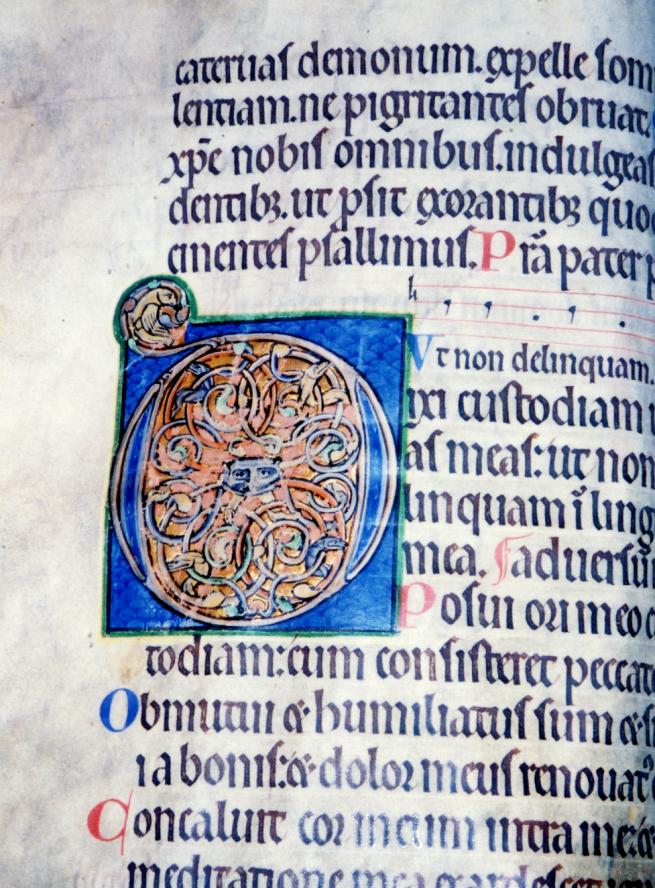 cateruas demonum. expelle som
lentiam. ne pigritantes obruat.
xpe nobis omnibus. indulgeas
dentibꝫ. ut psit exorantibꝫ quod
cinentes psallimus. Pr̄a pater
Vt non delinquam.
D ixi custodiam
as meas: ut non
linquam ī ling
mea. s aduersū
Posui ori meo c
todiam: cum consisteret peccato
Obmutui & humiliatus sum & si
ia bonis: & dolor meus renouat᷒
Concaluit cor meum intra me: &
meditatione mea exardescet